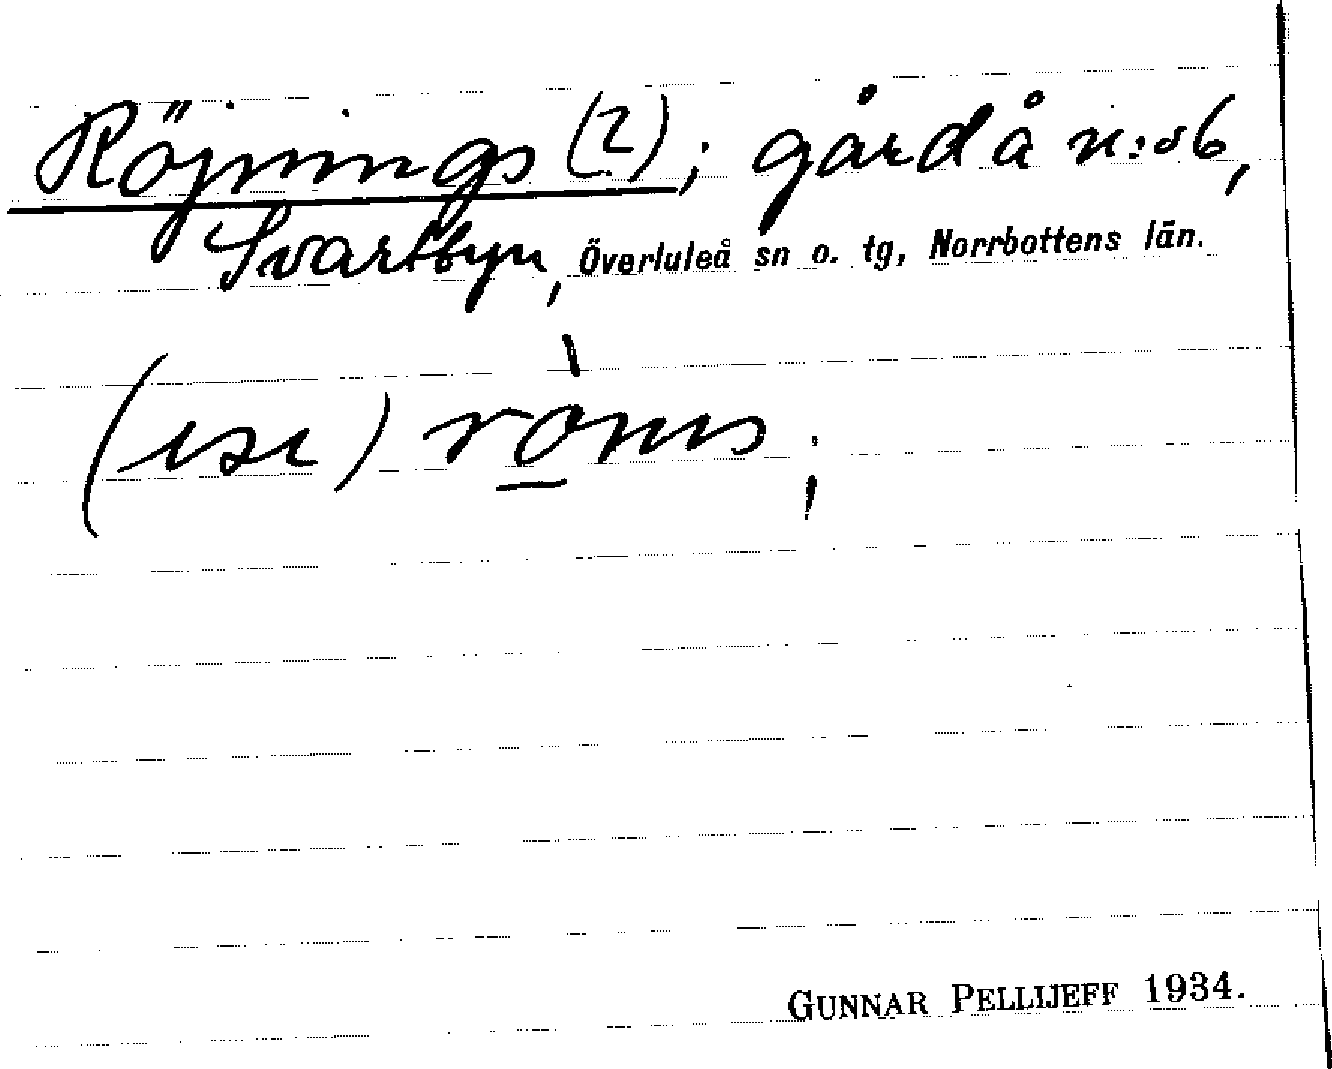 Röjnings (?); gård å n:o 6,
Svartbyn, Överluleå sn o. tg, Norrbottens län.
GUNNAR PELLIJEFF 1934.